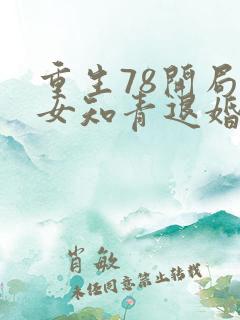 重生78开局
女知青退婚
肖敏
未经同意禁止转载